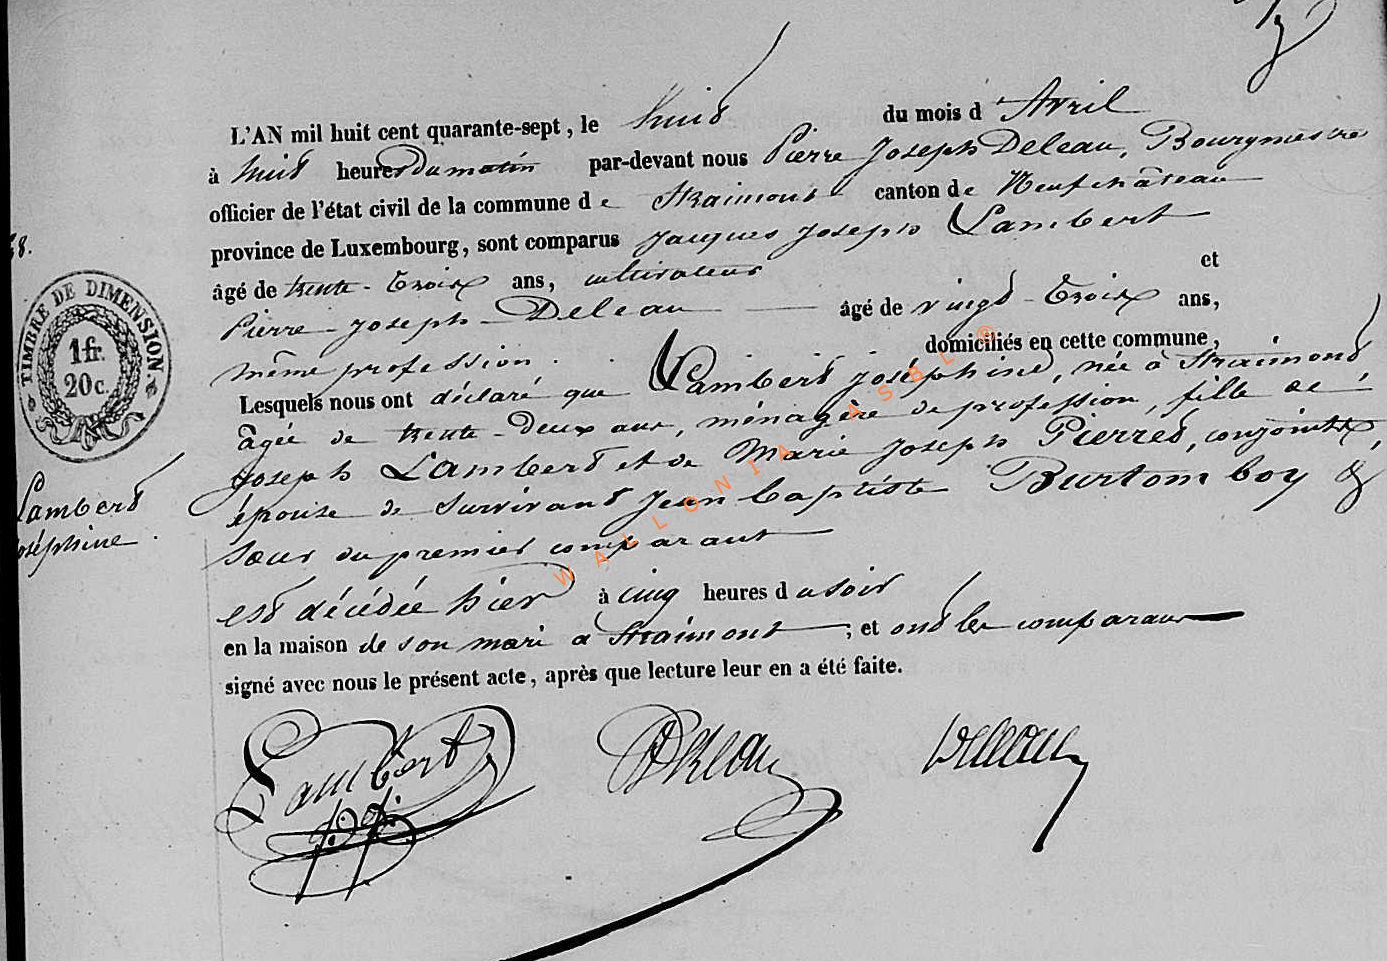 L'AN mil huit cent quarante-sept, le huit du mois d'Avril
à huit heures Du matin par-devant nous Pierre Joseph Deleau, Bourgmestre
officier de l'état civil de la commune de Straimont canton de Neufchâteau
province de Luxembourg, sont comparus Jacques Joseph Lambert
âgé de trente-trois ans, cultivateur et
Pierre-Joseph-Deleau âgé de vingt-trois ans,
même profession. domiciliés en cette commune,
Lesquels nous ont déclaré que Lambert joséphine, née à Straimont
âgée de trente-deux ans, ménagère de profession, fille de
Joseph Lambert et de Marie Joseph Pierret, conjoints,
épouse de survivant Jean Baptiste Burtomboy &
sœur du premier comparant
est décédée hier à cinq heures du soir
en la maison de son mari a Straimont, et ont les comparans
signé avec nous le présent acte, après que lecture leur en a été faite.
TIMBRE DE DIMENSION.
1 fr.
20 c.
Lambert
oséphine.
Lambert
Deleau
Deleau
WALLONIA ASBL ©